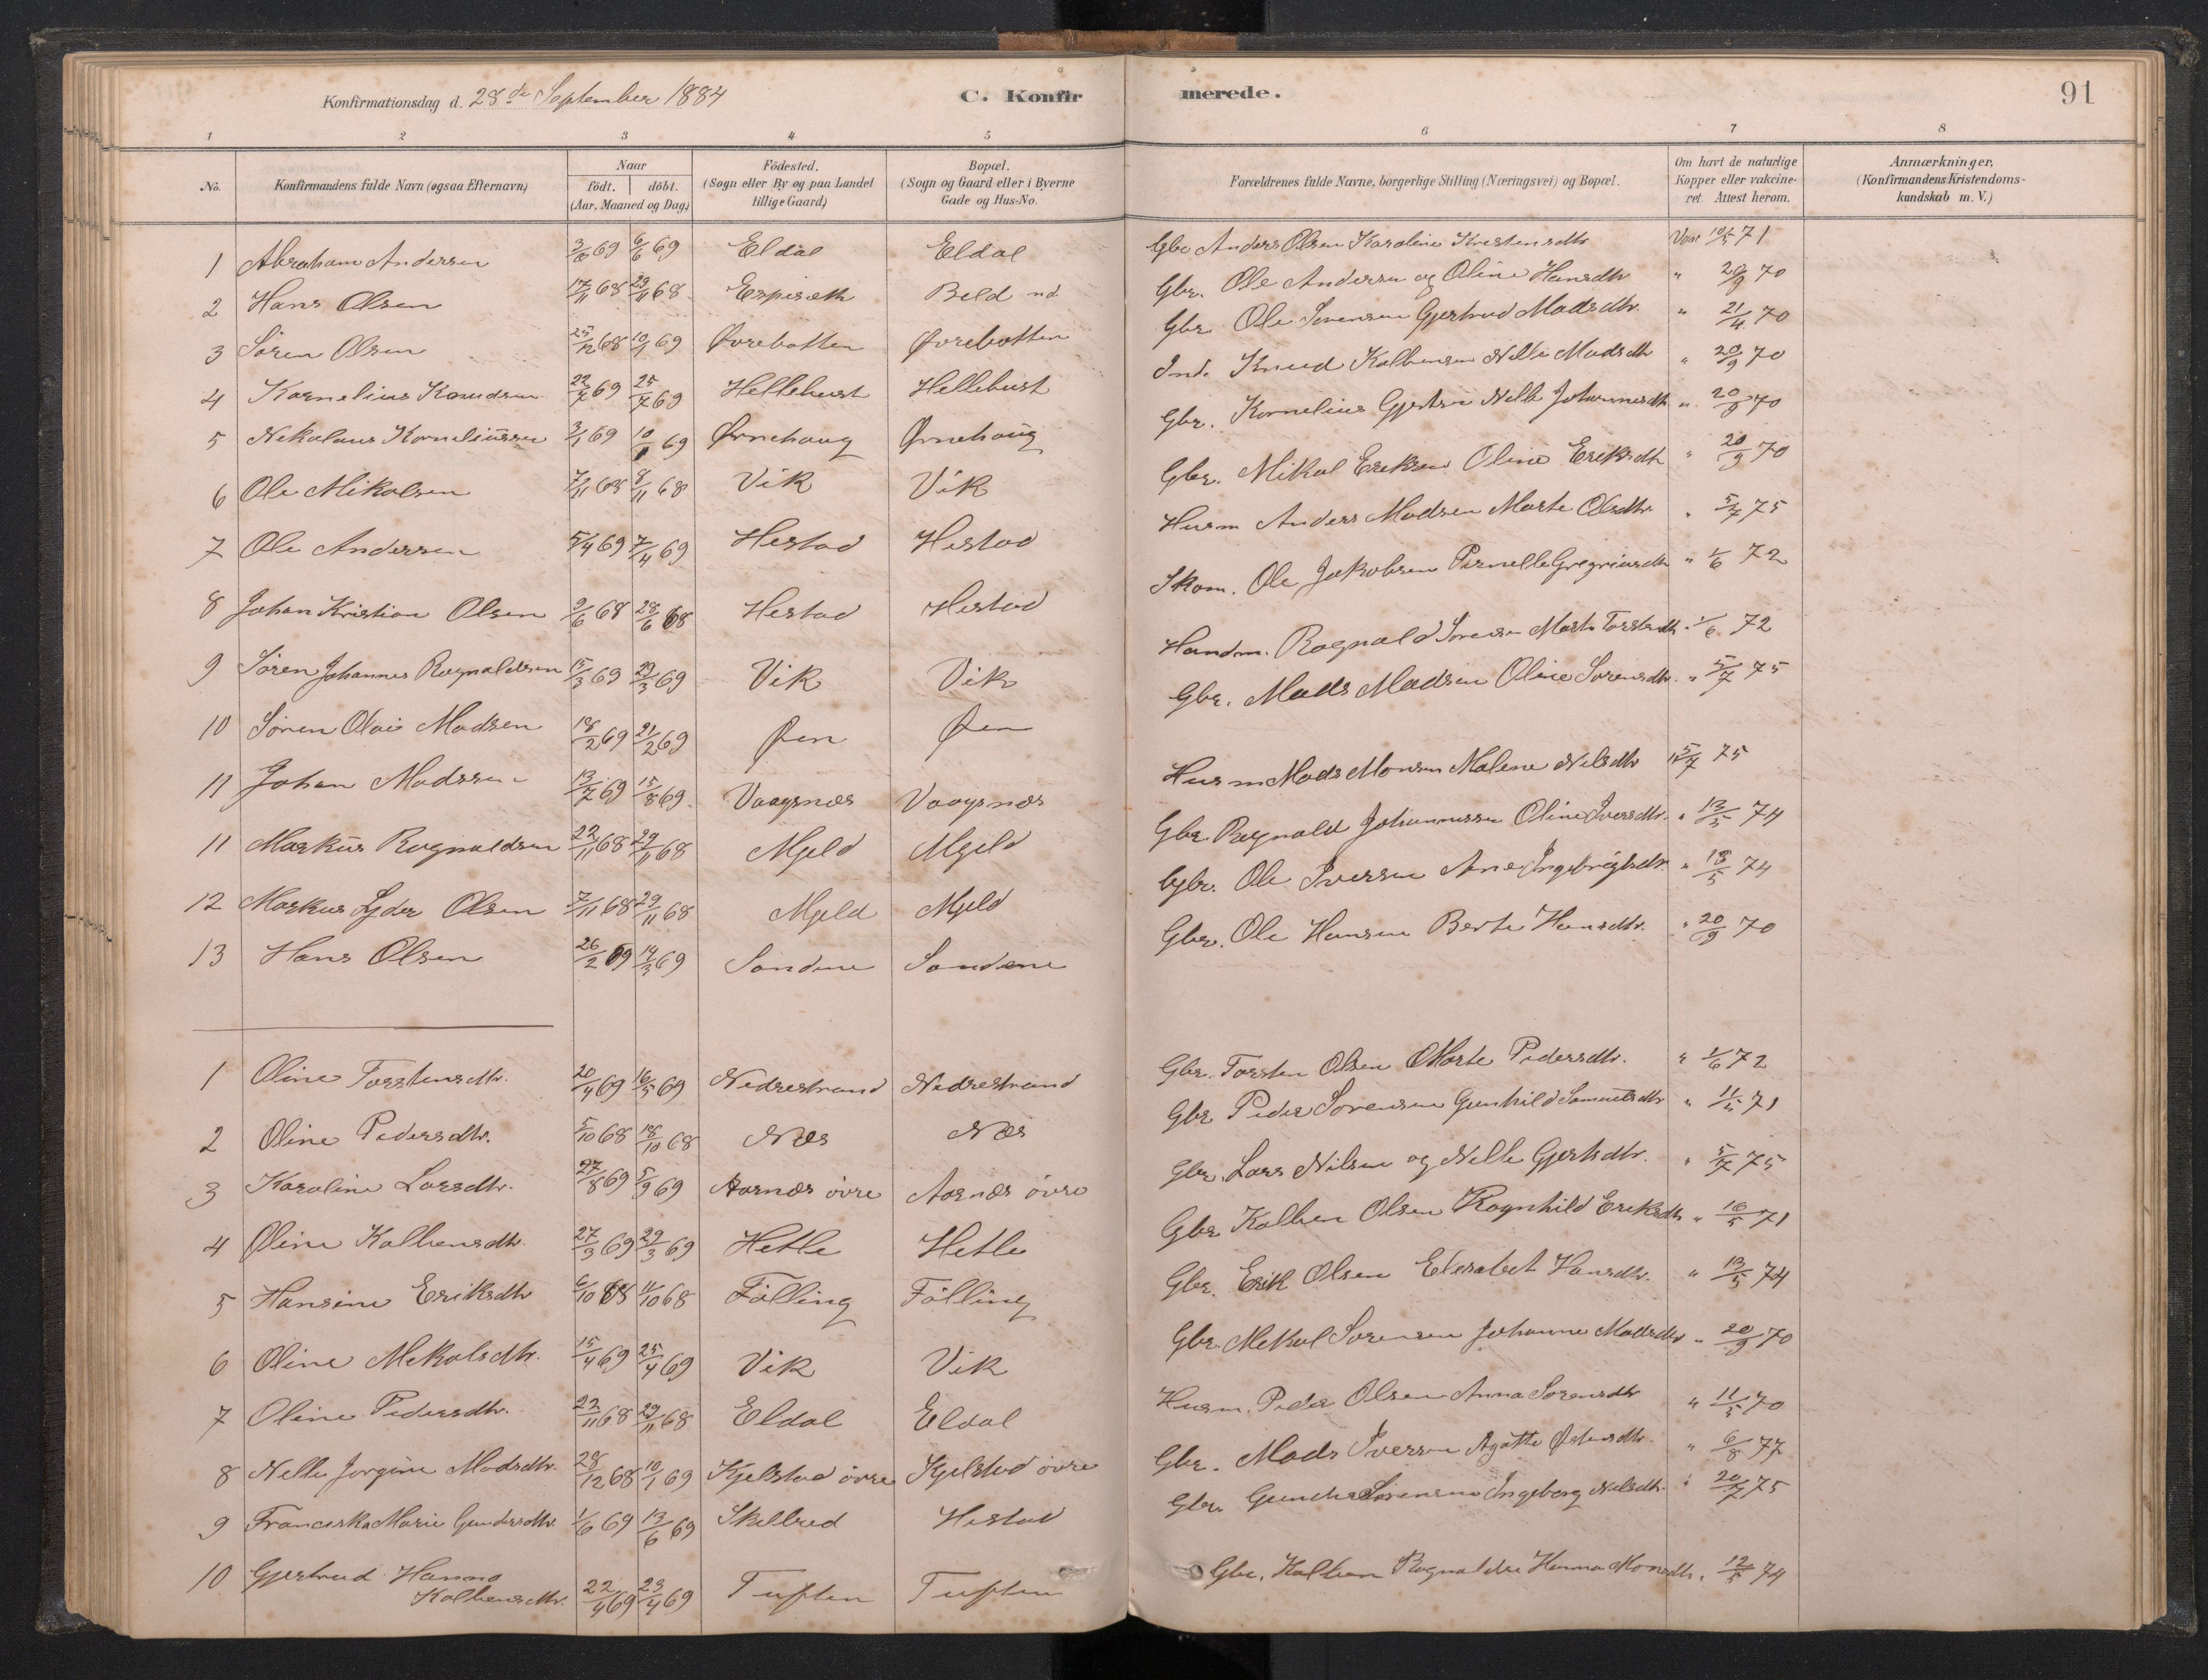 Konfirmationsdag d. 28de September 1884
C. Konfirmerede.
91
1 2 3 4 5 6 7 8
No. | Konfirmandens fulde Navn (ogsaa Efternavn) | Naar födt. | döbt. (Aar, Maaned og Dag) | Födested. (Sogn eller By og paa Landet tillige Gaard) | Bopæl. (Sogn og Gaard eller i Byerne Gade og Hus-No. | Forældrenes fulde Navne, borgerlige Stilling (Næringsvei) og Bopæl. | Om havt de naturlige Kopper eller vakcineret. Attest herom. | Anmærkninger, (Konfirmandens Kristendomskundskab m. V.)
1 Abraham Andersen 3/6 69 6/6 69 Eldal Eldal Gbr Anders Olsen Karoline Kristensdtr Vac 10/5 71
2 Hans Olsen 17/11 68 29/11 68 Espesæth Beld nd Gbr. Ole Andersen og Oline Hansdtr " 20/9 70
3 Søren Olsen 25/12 68 10/1 69 Øvrebotten Øvrebotten Gbr. Ole Sørensen Gjertrud Madsdtr. " 21/4 70
4 Kornelius Knudsen 22/7 69 25/7 69 Hellebust Hellebust Ind. Knud Kolbensen Nille Madsdtr " 20/9 70
5 Nikolaus Korneliussen 3/1 69 10/1 69 Ørnehaug Ørnehaug Gbr. Kornelius Gjertsen Nille Johannesdtr " 20/8 70
6 Ole Mikalsen 7/11 68 8/11 68 Vik Vik Gbr. Mikal Eriksen Oline Eriksdtr " 20/9 70
7 Ole Andersen 5/4 69 7/4 69 Hestad Hestad Husm Anders Madsen Marte Olsdtr. " 5/7 75
8 Johan Kristian Olsen 9/6 68 28/6 68 Hestad Hestad Skom. Ole Jakobsen Pernelle Gregriusdtr " 1/6 72
9 Søren Johannes Ragnaldsen 15/3 69 29/3 69 Vik Vik Handm. Ragnald Sørensen Marte Torstendtr " 1/6 72
10 Søren Olai Madsen 18/2 69 21/2 69 Øen Øen Gbr. Mads Madsen Oline Sørensdtr. " 5/7 75
11 Johan Madssen 13/7 69 15/8 69 Vaagsnæs Vaagsnæs Husm Mads Monsen Malene Nilsdtr " 5/7 75
11 Markus Ragnaldsen 22/11 68 29/11 68 Mjeld Mjeld Gbr. Ragnald Johannessen Oline Iversdtr. " 13/5 74
12 Markus Lyder Olsen 7/11 68 29/11 68 Mjeld Mjeld Gbr. Ole Iversen Ane Ingebrigtsdtr. " 13/5 74
13 Hans Olsen 26/2 69 14/3 69 Sandene Sandene Gbr. Ole Hansen Berte Hansdtr. " 20/9 70
1 Oline Torstensdtr. 20/4 69 16/5 69 Nedrestrand Nedrestrand Gbr. Torsten Olsen Marte Pedersdtr. " 1/6 72
2 Oline Pedersdtr. 5/10 68 18/10 68 Næs Næs Gbr Peder Sørensen Gunhild Samuelsdtr " 11/5 71
3 Karoline Larsdtr. 27/8 69 5/9 69 Aarnæs övre Aarnæs övre Gbr. Lars Nilsen og Nille Gjertsdtr. " 5/7 75
4 Oline Kolbensdtr. 27/3 69 29/3 69 Hetle Hetle Gbr Kolben Olsen Ragnhild Eriksdtr " 10/5 71
5 Hansine Eriksdtr 6/10 68 11/10 68 Fölling Fölling Gbr. Erik Olsen Elesabet Hansdtr. " 13/5 74
6 Oline Mekalsdtr. 15/4 69 25/4 69 Vik Vik Gbr. Mekal Sørensen Johanne Madsdtr " 20/9 70
7 Oline Pedersdtr. 22/11 68 29/11 68 Eldal Eldal Husm. Peder Olsen Anna Sørensdtr " 11/5 70
8 Nelle Jorgine Madsdtr. 28/12 68 10/1 69 Kjelstad övre Kjelstad övre Gbr. Mads Iversen Agatte Østensdtr. " 6/8 77
9 Franciska Marie Gundersdtr. 1/6 69 13/6 69 Skilbred Hestad Gbr. Gunder Sørensen Ingeborg Nilsdtr. " 20/7 75
10 Gjertrud Hanna
Kolbensdtr. 22/4 69 23/4 69 Tuften Tuften Gbr. Kolben Ragnaldsen Hanna Monsdtr. " 12/5 74